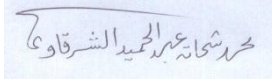 محمد شحاته عبد الحميد الشرقاوى